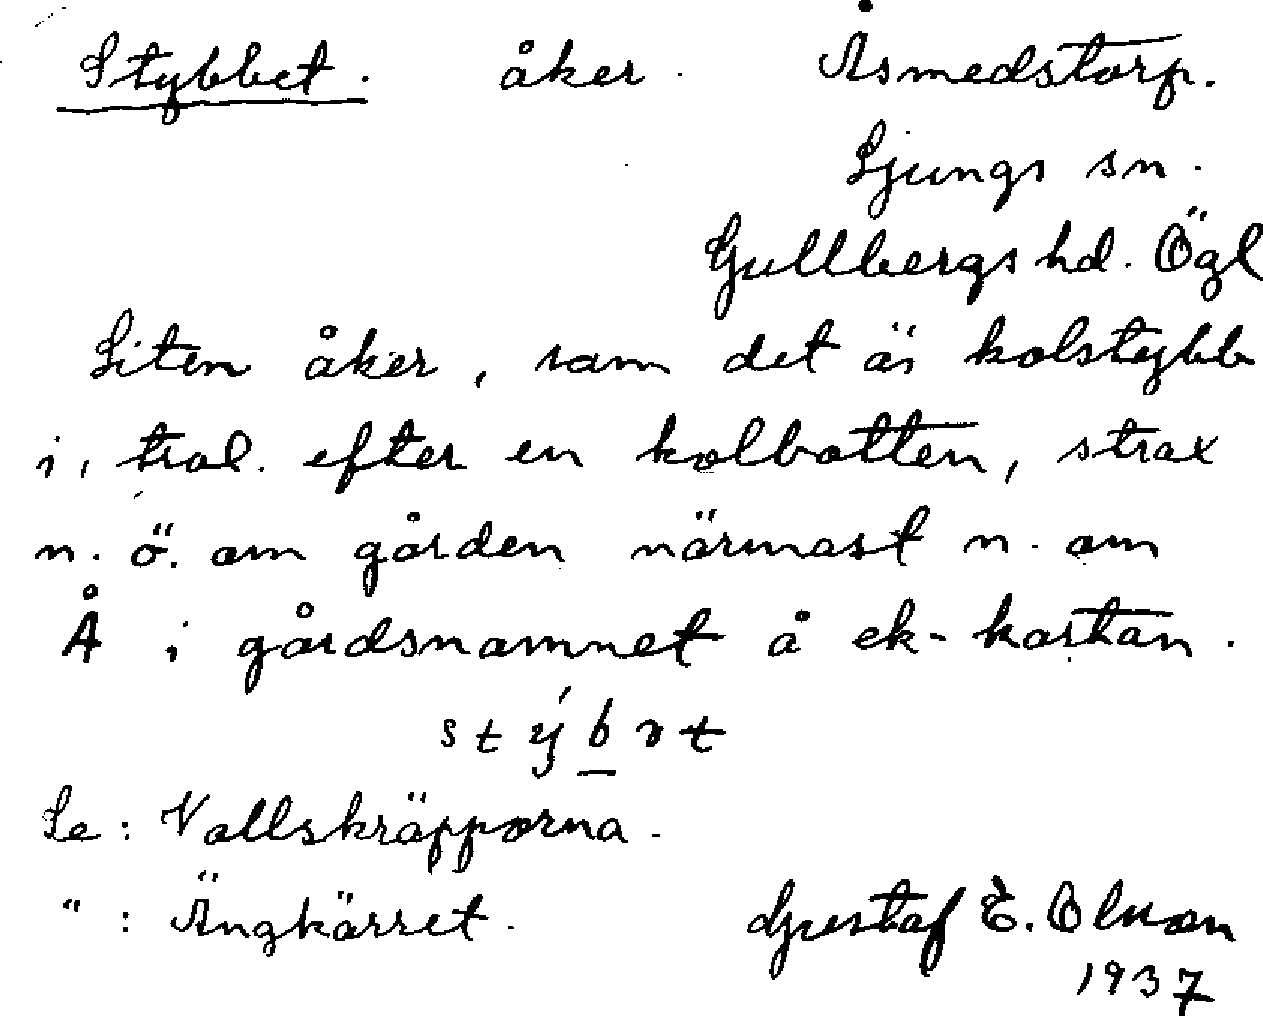 Stybbet. åker. Åsmedstorp.
Ljungs sn.
Gullbergs hd. Ögl
Liten åker, som det är kolstybb
i, trol. efter en kolbotten, strax
n. ö. om gården närmast n. om
Å i gårdsnamnet å ek-kartan.
stýbət
Se: Vallskräpporna.
" : Ängkärret. Gustaf E. Olsson
1937